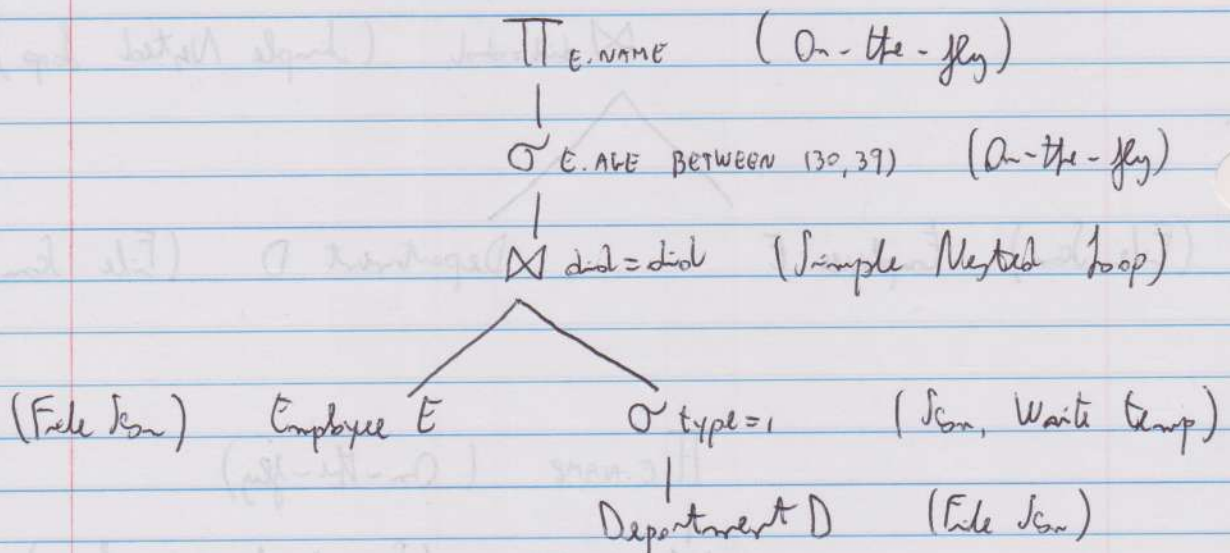 Π E.NAME (On-the-fly)
σ E.AGE BETWEEN (30,39) (On-the-fly)
⋈ did=did (Simple Nested Loop)
(File Scan) Employee E σ type=1 (Scan, Write temp)
Department D (File Scan)